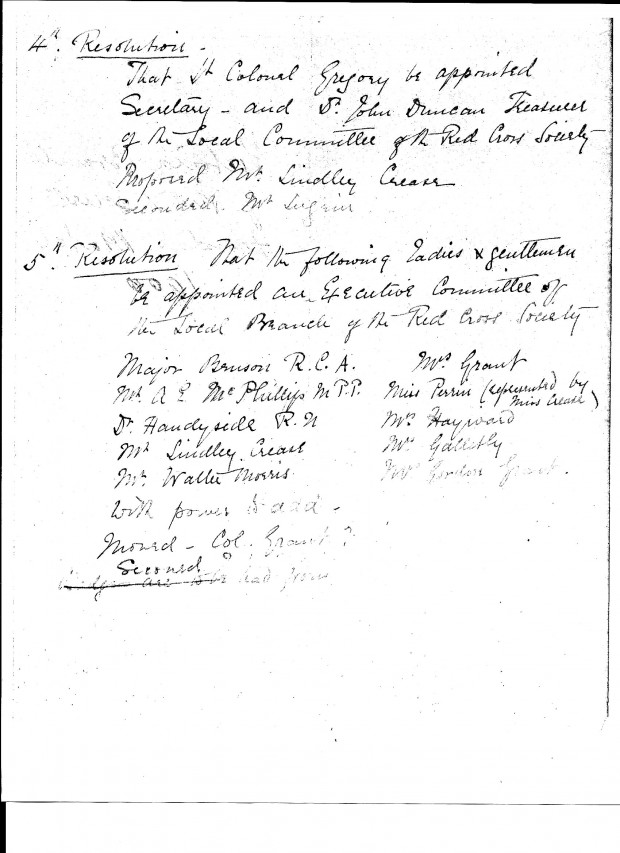 4th. Resolution -
That Lt Colonel Gregory be appointed
Secretary - and Dr. John Duncan Treasurer
of the Local Committee of the Red Cross Society
Proposed Mr. Lindley Crease
Seconded. Mr Lugrin
5th. Resolution That the following Ladies & gentlemen
be appointed an Executive Committee of
the Local Branch of the Red Cross Society
Major Benson R.C.A. Mrs Grant
Mr. A E McPhillips M.P.P. Miss Perrin (represented by Miss Crease)
Dr. Handyside R.N Mrs Hayward
Mr Lindley Crease Mrs Galletly
Mr. Walter Morris Mrs Gordon Grant.
With power to add -
Moved - Col. Grant ?
Seconed "
are to be had from